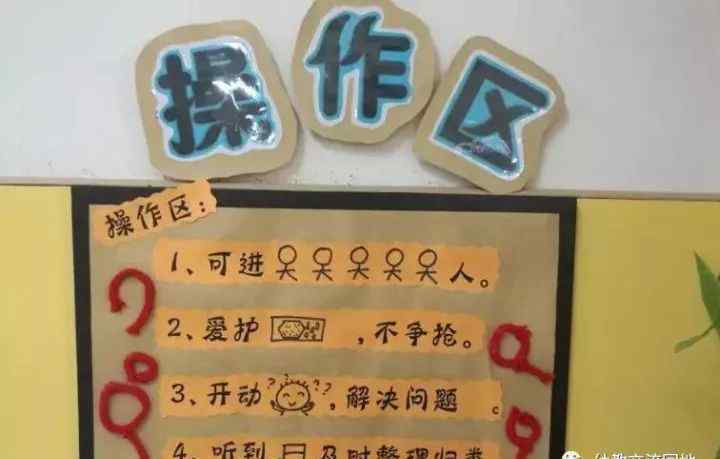 操作区
操作区：
1、可进 人。
2、爱护 ，不争抢。
3、开动 ???，解决问题。
4、听到 及时整理归类
幼教交流园地